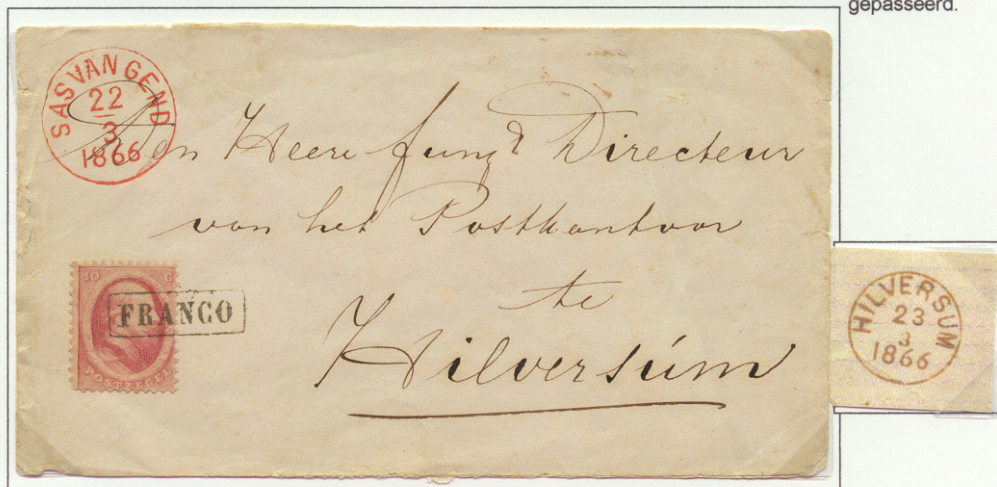 gepasseerd.
SAS VAN GEND
22
3
1866
Den Heere fungd Directeur
van het Postkantoor
te
Hilversum
10 C
FRANCO
POSTZEGEL
HILVERSUM
23
3
1866